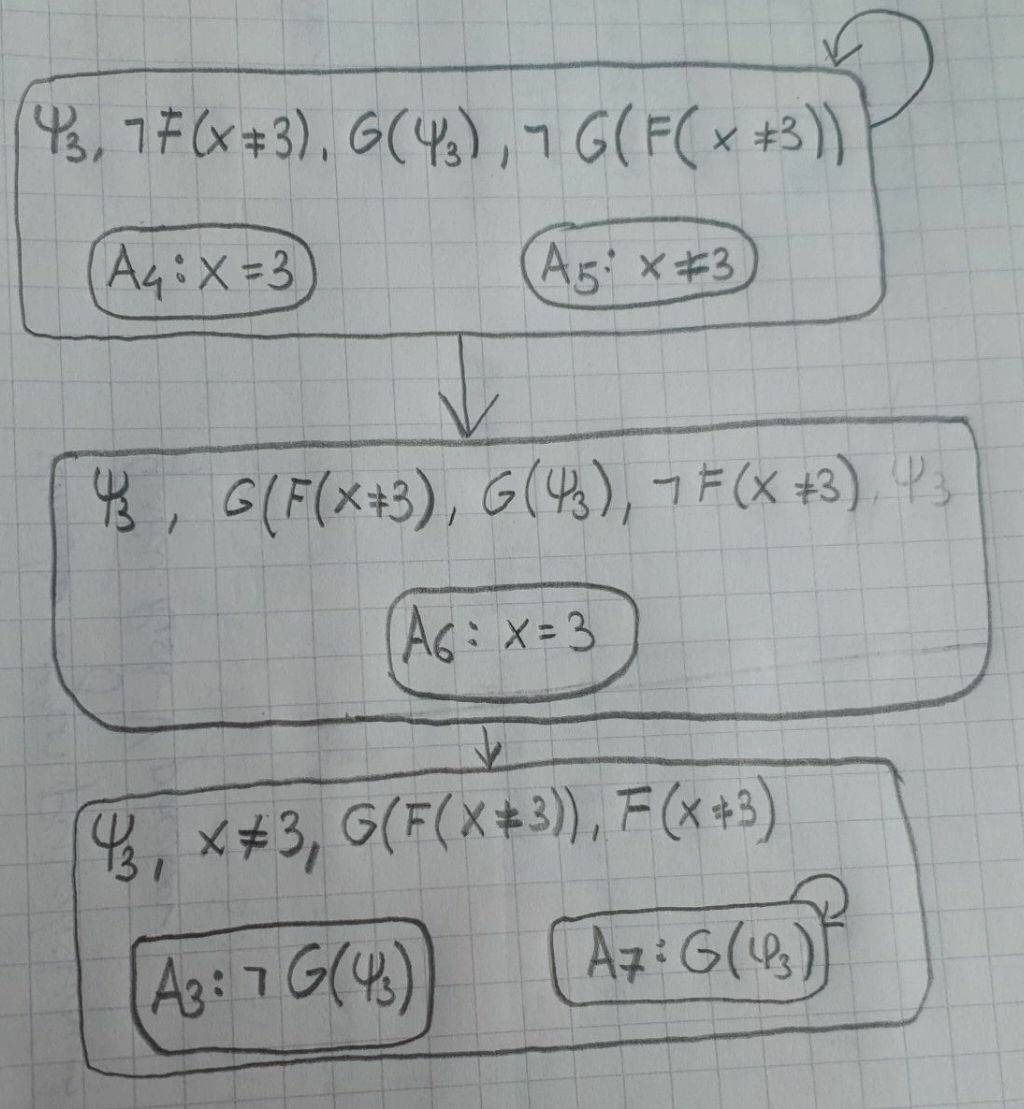 Ψ₃, ¬F(x≠3), G(Ψ₃), ¬G(F(x≠3))
A₄: x=3
A₅: x≠3
Ψ₃, G(F(x≠3), G(Ψ₃), ¬F(x≠3), Ψ₃
A₆: x=3
Ψ₃, x≠3, G(F(x≠3)), F(x≠3)
A₃: ¬G(Ψ₃)
A₇: G(Ψ₃)